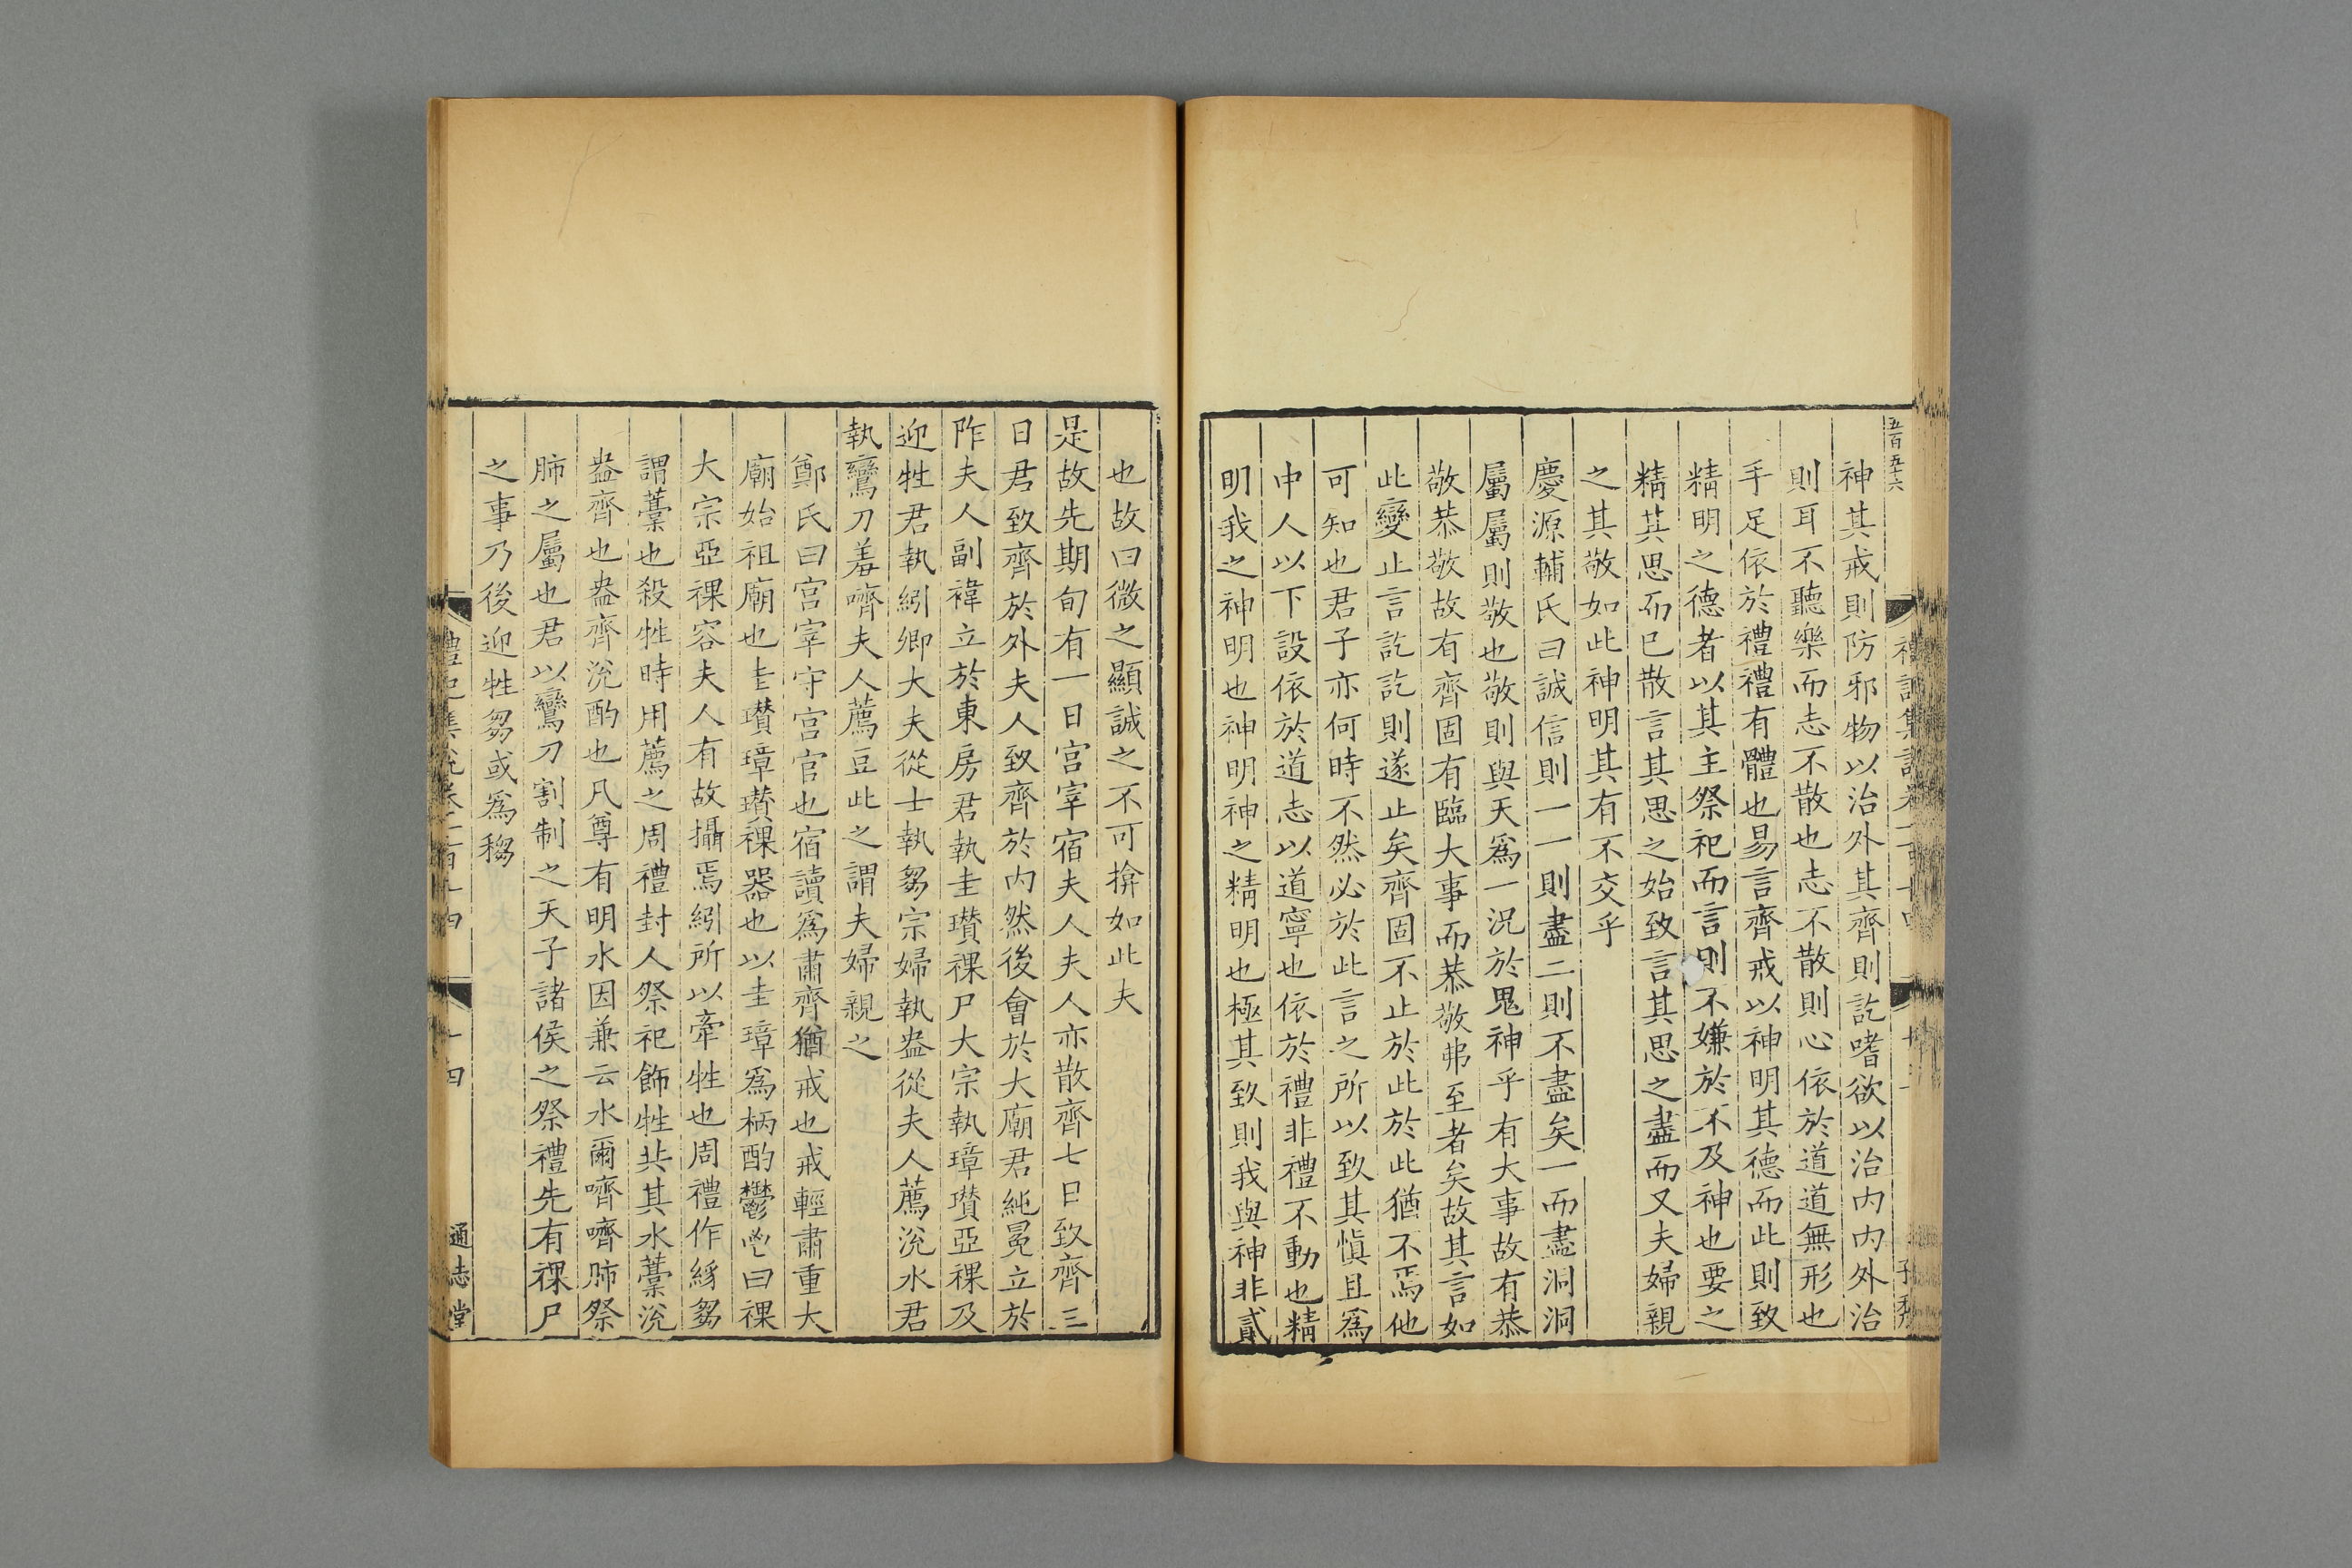 五百五十六
神其戒則防邪物以治外其齊則訖嗜欲以治内内外治
則耳不聽樂而志不散也志不散則心依於道道無形也
手足依於禮禮有體也易言齊戒以神明其德而此則致
精明之德者以其主祭祀而言則不嫌於不及神也要之
精其思而已散言其思之始致言其思之盡而又夫婦親
之其敬如此神明其有不交乎
慶源輔氏曰誠信則一一則盡二則不盡矣一而盡洞洞
屬屬則敬也敬則與天爲一況於鬼神乎有大事故有恭
敬恭敬故有齊固有臨大事而恭敬弗至者矣故其言如
此變止言訖訖則遂止矣齊固不止於此於此猶不焉他
可知也君子亦何時不然必於此言之所以致其愼且爲
中人以下設依於道志以道寧也依於禮非禮不動也精
明我之神明也神明神之精明也極其致則我與神非貳
也故曰微之顯誠之不可揜如此夫
是故先期旬有一日宮宰宿夫人夫人亦散齊七日致齊三
日君致齊於外夫人致齊於内然後會於大廟君純冕立於
阼夫人副褘立於東房君執圭瓚祼尸大宗執璋瓚亞祼及
迎牲君執紖卿大夫從士執芻宗婦執盎從夫人薦涗水君
執鸞刀羞嚌夫人薦豆此之謂夫婦親之
鄭氏曰宮宰守宮官也宿讀爲肅齊猶戒也戒輕肅重大
廟始祖廟也圭瓚璋瓚祼器也以圭璋爲柄酌鬱鬯曰祼
大宗亞祼容夫人有故攝焉紖所以牽牲也周禮作絼芻
謂藁也殺牲時用薦之周禮封人祭祀飾牲共其水藁涗
盎齊也盎齊涗酌也凡尊有明水因兼云水爾嚌嚌肺祭
肺之屬也君以鸞刀割制之天子諸侯之祭禮先有祼尸
之事乃後迎牲芻或爲究
禮記集說卷一百十四　十四　通志堂